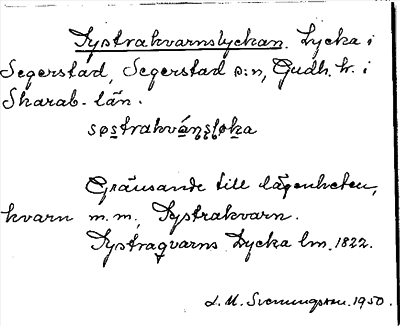 Systrakvarnslyckan. Lycka i
Segerstad, Segerstad s:n, Gudh. h. i
Skarab. län.
søstrakvánsløka
Gränsande till lägenheten,
kvarn m.m., Systrakvarn.
Systraqvarns Lycka lm. 1822.
L. M. Svenungsson. 1950.